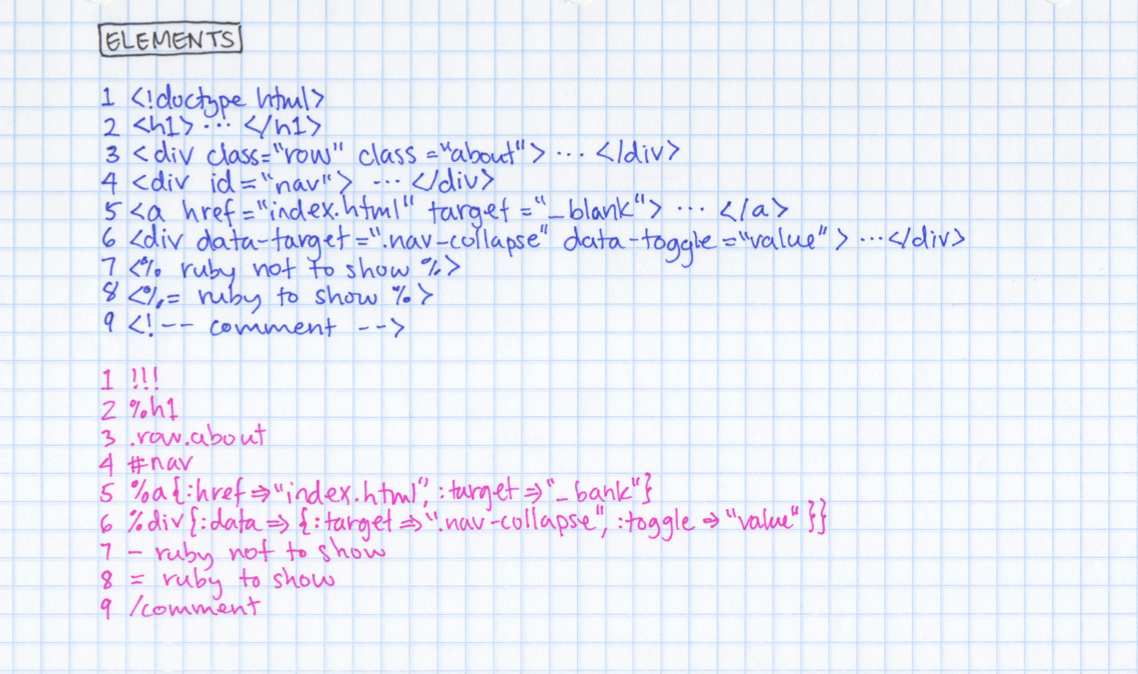 ELEMENTS
1 <!doctype html>
2 <h1> ... </h1>
3 <div class="row" class="about"> ... </div>
4 <div id="nav"> ... </div>
5 <a href="index.html" target="_blank"> ... </a>
6 <div data-target=".nav-collapse" data-toggle="value"> ... </div>
7 <% ruby not to show %>
8 <%= ruby to show %>
9 <!-- comment -->
1 !!!
2 %h1
3 .row.about
4 #nav
5 %a{:href => "index.html", :target => "_bank"}
6 %div{:data => {:target => ".nav-collapse", :toggle => "value"}}
7 - ruby not to show
8 = ruby to show
9 /comment